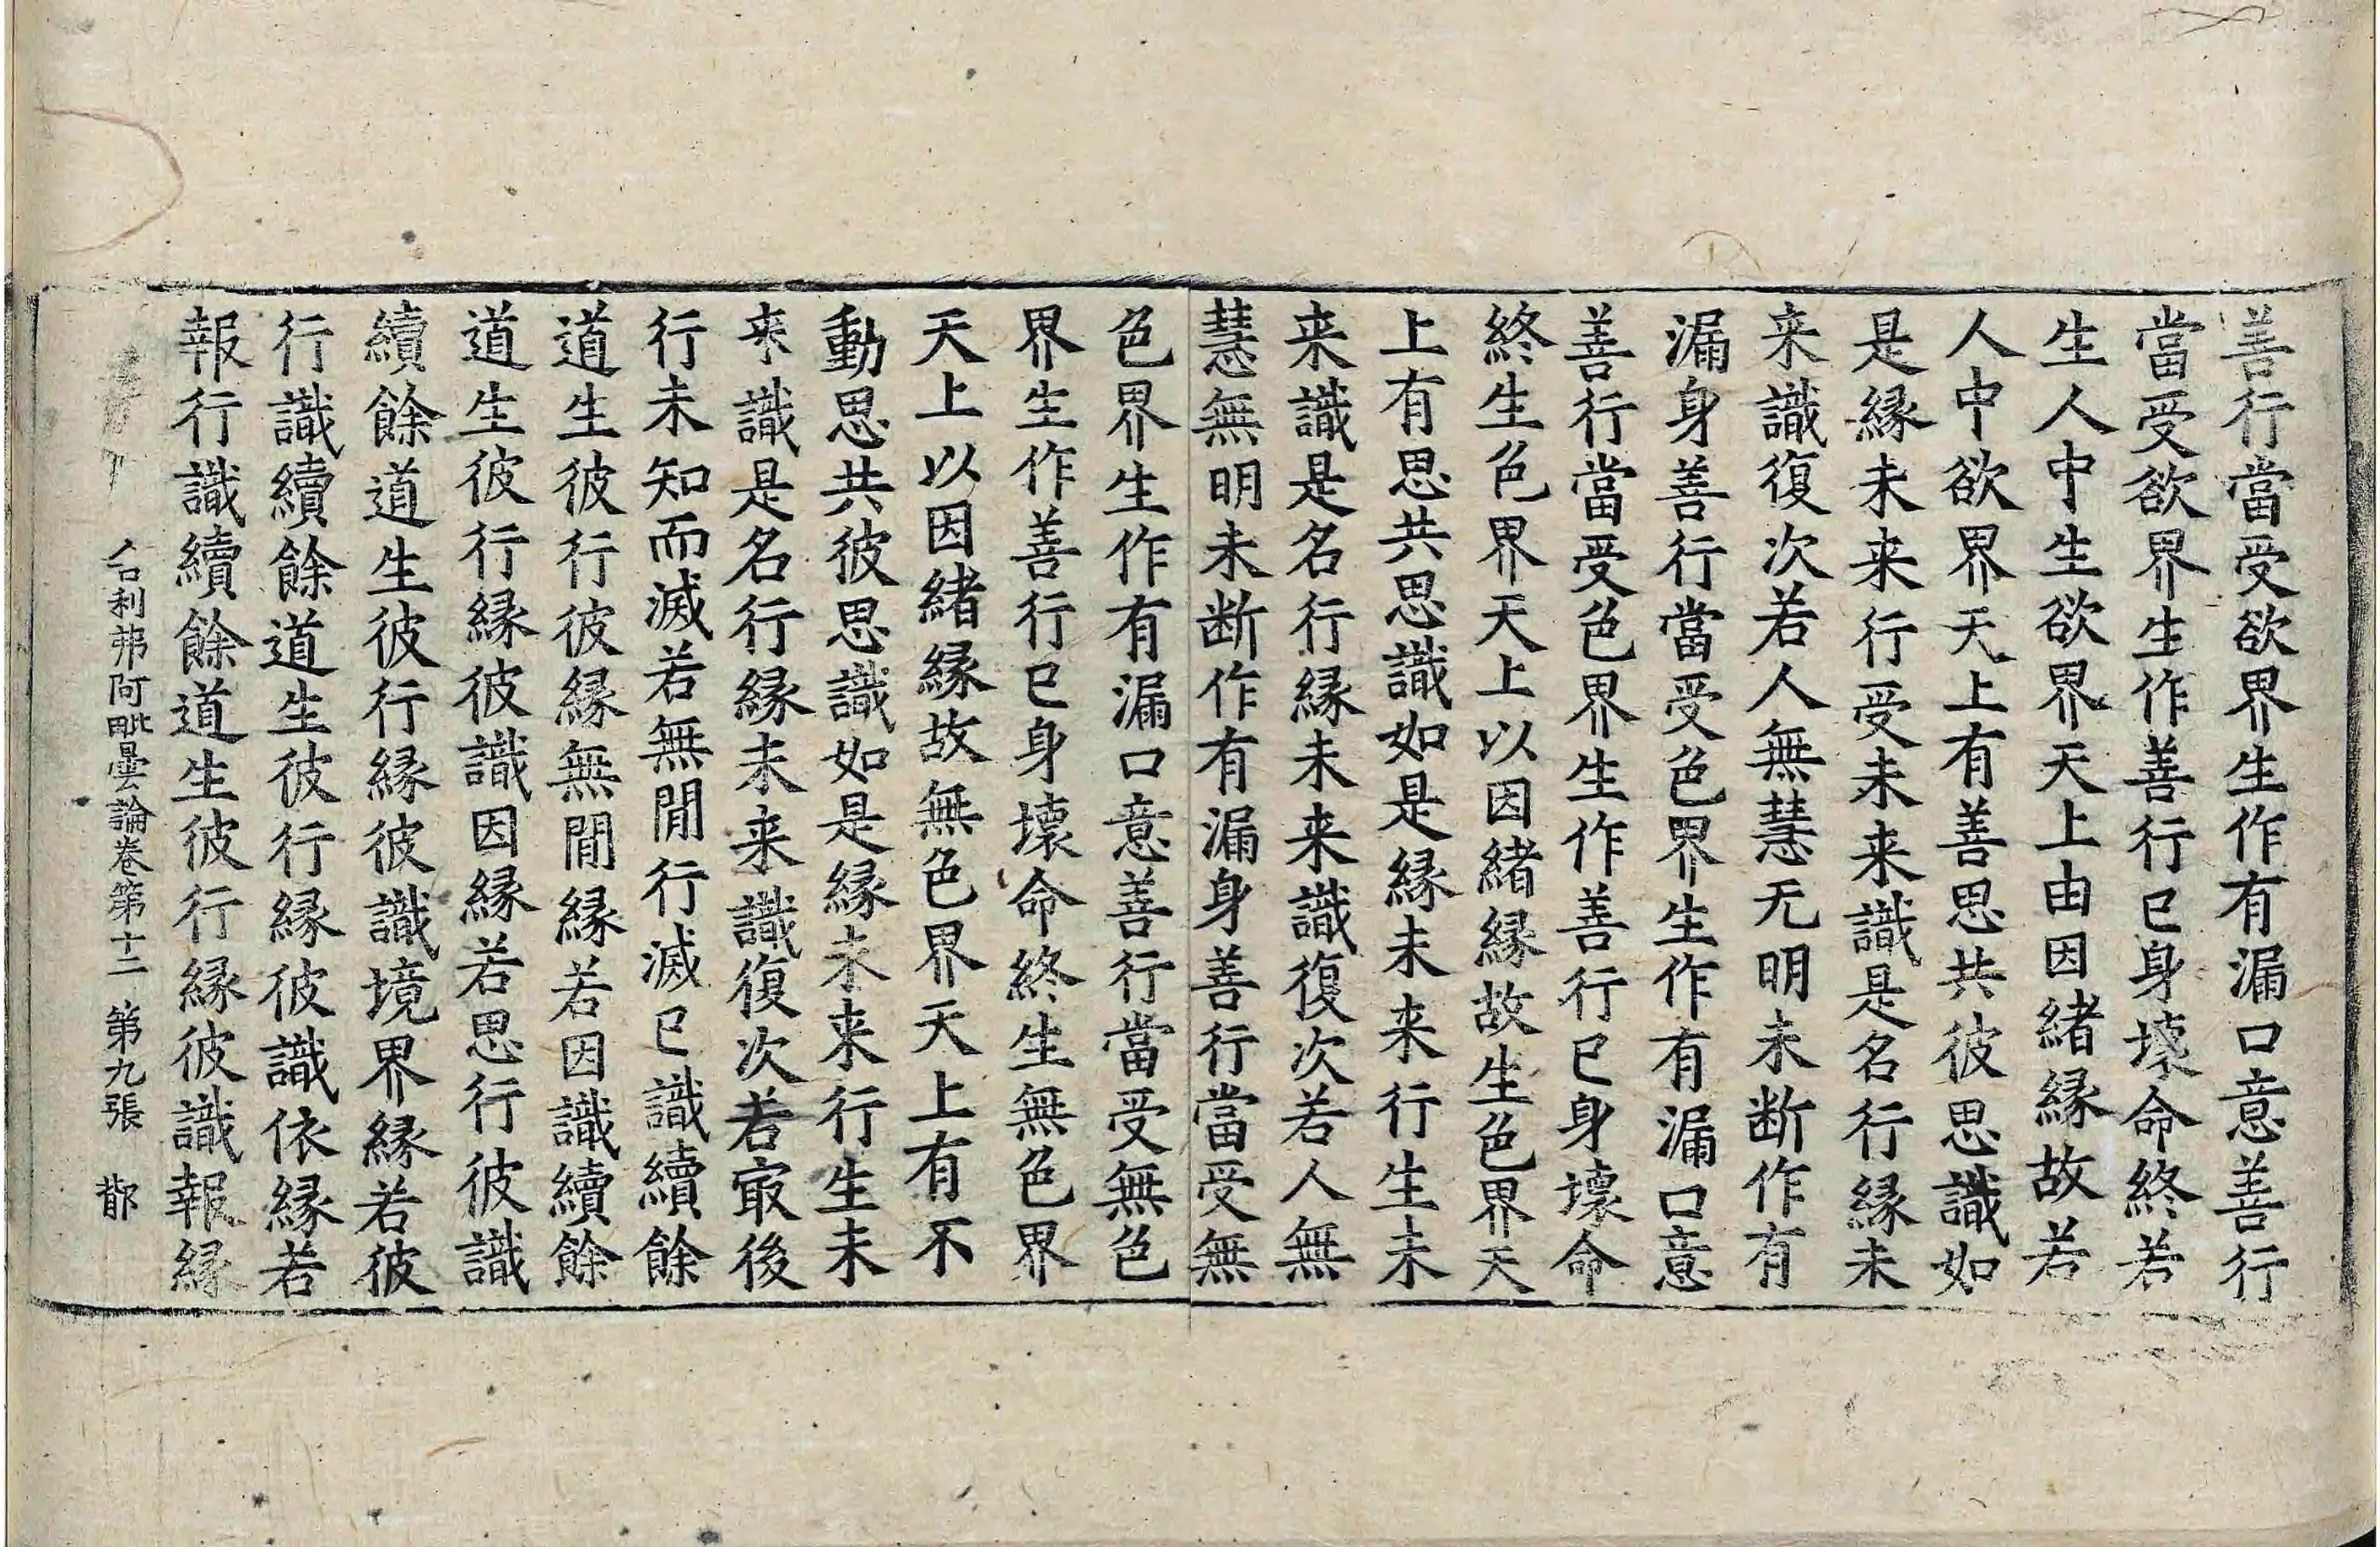 善行當受欲界生作有漏口意善行
當受欲界生作善行已身壞命終若
生人中生欲界天上由因緒緣故若
人中欲界天上有善思共彼思識如
是緣未来行受未来識是名行緣未
来識復次若人無慧无明未断作有
漏身善行當受色界生作有漏口意
善行當受色界生作善行已身壞命
終生色界天上以因緒緣故生色界天
上有思共思識如是緣未来行生未
来識是名行緣未来識復次若人無
慧無明未断作有漏身善行當受無
色界生作有漏口意善行當受無色
界生作善行已身壞命終生無色界
天上以因緒緣故無色界天上有不
動思共彼思識如是緣未来行生未
来識是名行緣未来識復次若㝡後
行未知而滅若無間行滅已識續餘
道生彼行彼緣無間緣若因識續餘
道生彼行緣彼識因緣若思行彼識
續餘道生彼行緣彼識境界緣若彼
行識續餘道生彼行緣彼識依緣若
報行識續餘道生彼行緣彼識報緣
舍利弗阿毗曇論卷第十二 第九張